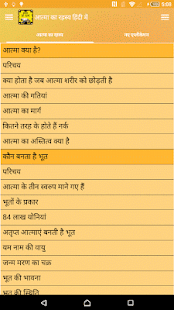 5:08
आत्मा का रहस्य हिंदी में
आत्मा का रहस्य
आत्मा क्या है?
परिचय
क्या होता है जब आत्मा शरीर को छोड़ती है
आत्मा की गतियां
आत्मा का मार्ग
कितने तरह के होते हैं नर्क
आत्मा का अस्तित्व क्या है
कौन बनता है भूत
परिचय
आत्मा के तीन स्वरूप माने गए हैं
भूतों के प्रकार
84 लाख योनियां
अतृप्त आत्माएं बनती है भूत
यम नाम की वायु
जन्म मरण का चक्र
भूत की भावना
भूत की स्थिति